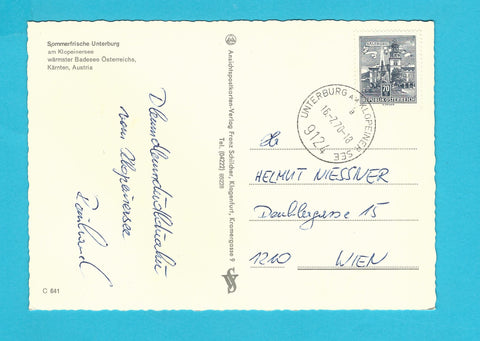 Sommerfrische Unterburg
am Klopeinersee
wärmster Badesee Österreichs,
Kärnten, Austria
vom Klopeinersee
C 641
Ansichtspostkarten-Verlag Franz Schilcher, Klagenfurt, Kramergasse 9
Tel. (04222)
70
REPUBLIK ÖSTERREICH
UNTERBURG AM KLOPEINER SEE
16.-7.70-18
a
9124
HELMUT NIESSNER
15
1210 WIEN